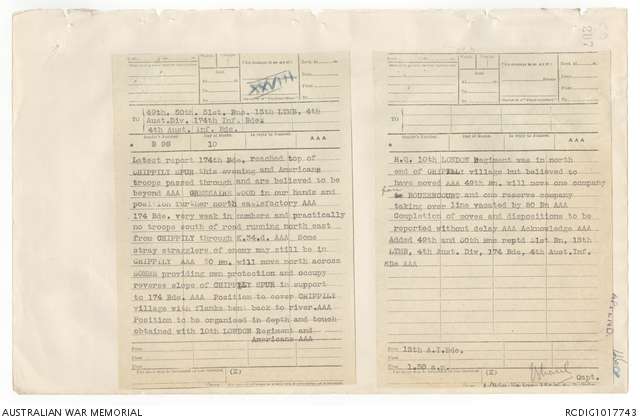 XXVIII
TO
49th. 50th. 51st. Bns. 13th LTMB. 4th
Aust.Div. 174th Inf. Bde.
4th Aust. Inf. Bde.
Sender's Number
Day of Month
In reply to Number
AAA
B 96
10
Latest report 174th Bde. reached top of
CHIPPILY SPUR this evening and Americans
troops passed through and are believed to be
beyond AAA GRESSAIRE WOOD in our hands and
position further north satisfactory AAA
174 Bde. very weak in numbers and practically
no troops south of road running north east
from CHIPPILY through K.34.d. AAA Some
stray stragglers of enemy may still be in
CHIPPILY AAA 50 Bn. will move north across
SOMME providing own protection and occupy
reverse slope of CHIPPILY SPUR in support
to 174 Bde. AAA Position to cover CHIPPILY
village with flanks bent back to river.AAA
Position to be organised in depth and touch
obtained with 10th LONDON Regiment and
Americans AAA
(Z)
TO
Sender's Number
Day of Month
In reply to Number
AAA
H.Q. 10th LONDON Regiment was in north
end of CHIPILLY village but believed to
have moved AAA 49th Bn. will move one company
from
to BOUZENCOURT and one reserve company
taking over line vacated by 50 Bn AAA
Completion of moves and dispositions to be
reported without delay AAA Acknowledge AAA
Added 49th and 50th Bns reptd 51st Bn, 13th
LTMB, 4th Aust. Div, 174 Bde, 4th Aust.Inf.
Bde AAA
From
13th A.I.Bde.
1.30 a.m.
(Z)
Capt.
AUSTRALIAN WAR MEMORIAL
RCDIG1017743